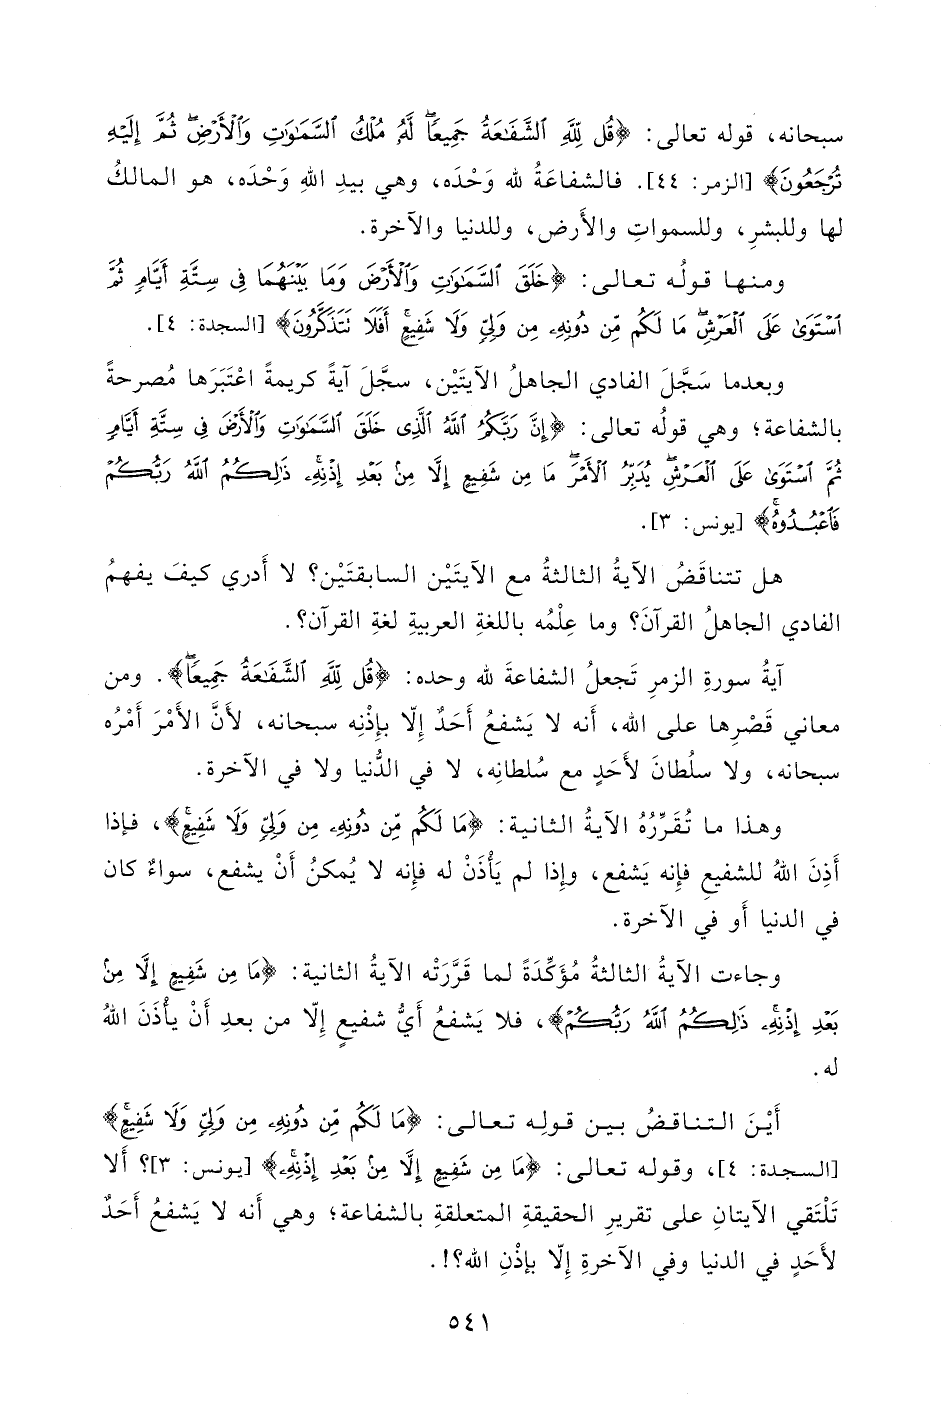 سبحانه، قوله تعالى: ﴿قُل لِّلَّهِ ٱلشَّفَٰعَةُ جَمِيعًاۖ لَّهُۥ مُلۡكُ ٱلسَّمَٰوَٰتِ وَٱلۡأَرۡضِۖ ثُمَّ إِلَيۡهِ
تُرۡجَعُونَ﴾ [الزمر: ٤٤]. فالشفاعَةُ لله وَحْدَه، وهي بيدِ اللهِ وَحْدَه، هو المالكُ
لها وللبشرِ، وللسمواتِ والأرض، وللدنيا والآخرة.
ومنها قولُه تعالى: ﴿خَلَقَ ٱلسَّمَٰوَٰتِ وَٱلۡأَرۡضَ وَمَا بَيۡنَهُمَا فِي سِتَّةِ أَيَّامٖ ثُمَّ
ٱسۡتَوَىٰ عَلَى ٱلۡعَرۡشِۖ مَا لَكُم مِّن دُونِهِۦ مِن وَلِيّٖ وَلَا شَفِيعٍۚ أَفَلَا تَتَذَكَّرُونَ﴾ [السجدة: ٤].
وبعدما سَجَّلَ الفادي الجاهلُ الآيتَيْن، سجَّلَ آيةً كريمةً اعْتَبَرَها مُصرحةً
بالشفاعة؛ وهي قولُه تعالى: ﴿إِنَّ رَبَّكُمُ ٱللَّهُ ٱلَّذِي خَلَقَ ٱلسَّمَٰوَٰتِ وَٱلۡأَرۡضَ فِي سِتَّةِ أَيَّامٖ
ثُمَّ ٱسۡتَوَىٰ عَلَى ٱلۡعَرۡشِۖ يُدَبِّرُ ٱلۡأَمۡرَۖ مَا مِن شَفِيعٍ إِلَّا مِنۢ بَعۡدِ إِذۡنِهِۦۚ ذَٰلِكُمُ ٱللَّهُ رَبُّكُمۡ
فَٱعۡبُدُوهُۚ﴾ [يونس: ٣].
هل تتناقَضُ الآيةُ الثالثةُ مع الآيتَيْن السابقتَيْن؟ لا أَدري كيفَ يفهمُ
الفادي الجاهلُ القرآنَ؟ وما عِلْمُه باللغةِ العربيةِ لغةِ القرآن؟.
آيةُ سورةِ الزمرِ تَجعلُ الشفاعةَ لله وحده: ﴿قُل لِّلَّهِ ٱلشَّفَٰعَةُ جَمِيعًاۖ﴾. ومن
معاني قَصْرِها على الله، أنه لا يَشفعُ أَحَدٌ إِلّا بإذْنِه سبحانه، لأَنَّ الأَمْرَ أَمْرُه
سبحانه، ولا سلطانَ لأَحَدٍ مع سُلطانِه، لا في الدُّنيا ولا في الآخرة.
وهذا ما تُقَرِّرُهُ الآيةُ الثانية: ﴿مَا لَكُم مِّن دُونِهِۦ مِن وَلِيّٖ وَلَا شَفِيعٍۚ﴾، فإذا
أَذِنَ اللهُ للشفيعِ فإنه يَشفع، وإذا لم يَأْذَنْ له فإنه لا يُمكنُ أَنْ يشفع، سواءٌ كان
في الدنيا أو في الآخرة.
وجاءت الآيةُ الثالثةُ مُؤَكِّدَةً لما قَرَّرَتْه الآيةُ الثانية: ﴿مَا مِن شَفِيعٍ إِلَّا مِنۢ
بَعۡدِ إِذۡنِهِۦۚ ذَٰلِكُمُ ٱللَّهُ رَبُّكُمۡ﴾، فلا يَشفعُ أَيُّ شفيعٍ إلّا من بعدِ أَنْ يأْذَنَ اللهُ
له.
أَيْنَ التناقضُ بين قولِه تعالى: ﴿مَا لَكُم مِّن دُونِهِۦ مِن وَلِيّٖ وَلَا شَفِيعٍۚ﴾
[السجدة: ٤]، وقوله تعالى: ﴿مَا مِن شَفِيعٍ إِلَّا مِنۢ بَعۡدِ إِذۡنِهِۦۚ﴾ [يونس: ٣]؟ ألا
تَلْتَقي الآيتانِ على تقريرِ الحقيقةِ المتعلقةِ بالشفاعة؛ وهي أَنه لا يَشفعُ أَحَدٌ
لأَحَدٍ في الدنيا وفي الآخرةِ إِلّا بإذْنِ الله؟!.
٥٤١